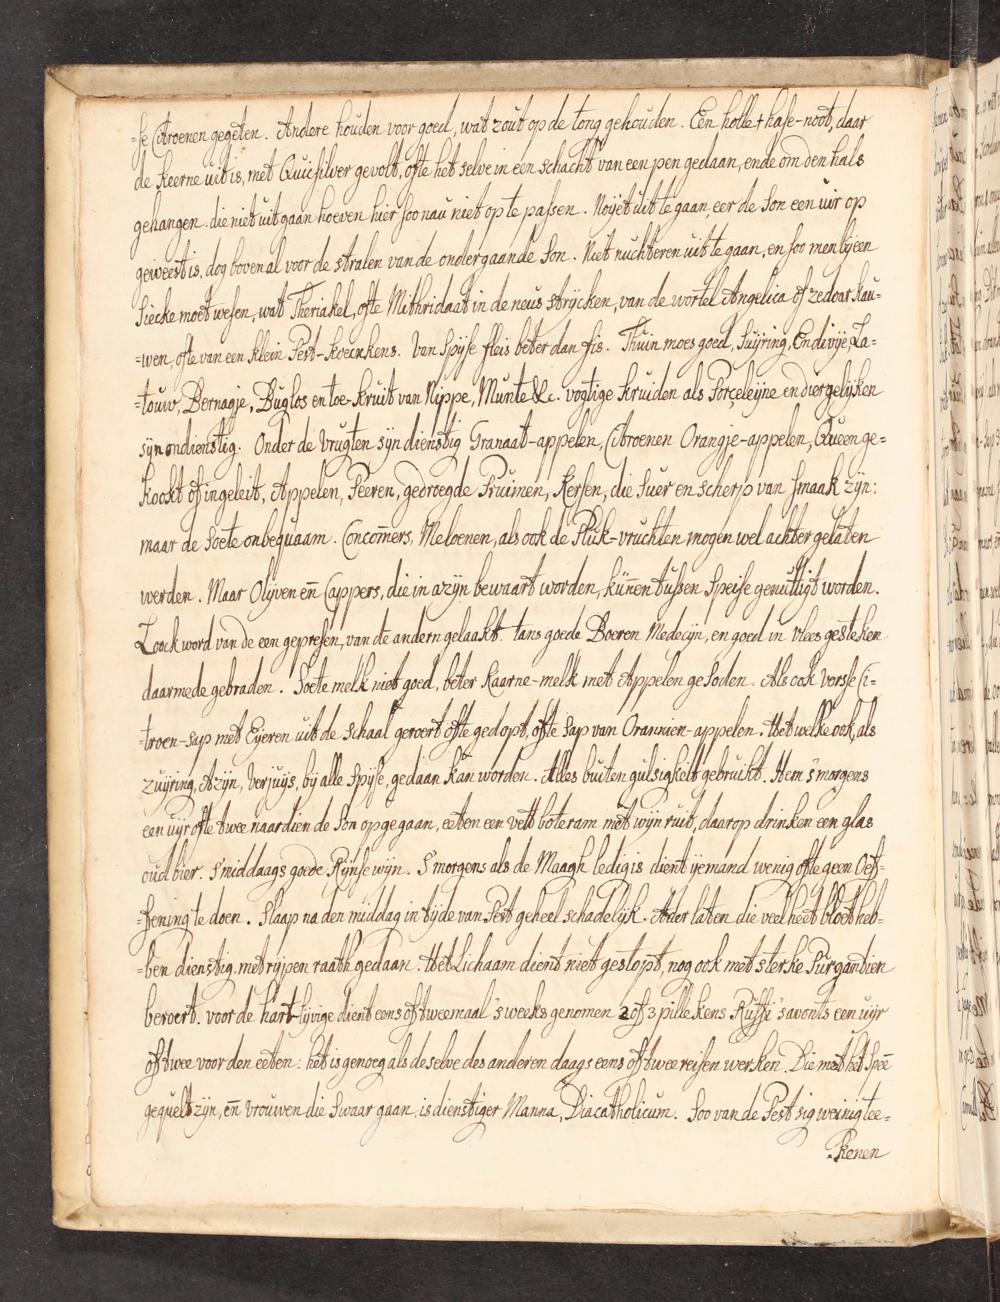 =se Citroenen gegeten. Andere houden voor goed, wat zout op de tong gehouden. Een holle hase-noot, daar
de keerne uit is, met Quicsilver gevolt, ofte het selve in een schacht van een pen gedaan, ende om den hals
gehangen. die niet uit gaan hoeven hier soo nau niet op te passen. Noyet uit te gaan, eer de Son een uir op
geweest is, dog boven al voor de stralen van de ondergaande Son. Niet nuchteren uit te gaan, en soo men by een
siecke moet wesen, wat Theriakel, ofte Mithridaat in de neus strycken, van de wortel Angelica of zedoar kau=
=wen, ofte van een klein Pest-koeckxkens. Van Spyse fleis beter dan fis. Thuin moes goed, Suyring, Endivije, La=
=touw, Bernagje, Buglos en toe-kruit van Nippe, Munte &c. vogtige kruiden als Porçeleijne en diergelyken
syn ondienstig. Onder de Vrugten syn dienstig Granaat-appelen, Citroenen Orangje-appelen, Queen ge=
kookt of ingeleit, Appelen, Peeren, gedroegde Pruimen, Kersen, die suer en scherp van smaak zyn:
maar de soete onbequaam. Concom̄ers, Meloenen, als ook de Pluk-vruchten mogen wel achter gelaten
werden. Maar Olyven en̄ Cappers, die in azyn bewaart worden, kun̄en tussen Speise genuttigt worden.
Loock word van de een gepresen, van de andern gelaakt. tans goede Boeren Medecyn, en goed in vlees gesteken
daarmede gebraden. Soete melk niet goed, beter Kaarne-melk met Appelen gesoden. Als ook verse Ci=
=troen-sap met Eyeren uit de schaal geroert ofte gedopt, ofte sap van Orannien-appelen. Het welke ook, als
zuyring, Azyn, Verjuys, by alle Spyse, gedaan kan worden. Alles buiten gulsigkeit gebruikt. Hem s'morgens
een uyr ofte twee naardien de Son opgegaan, eeten een vett boteram met wynruit, daarop drinken een glas
oud bier. s'middaags goede Rynse wyn. S'morgens als de Maagh ledig is dient yemand wenig ofte geen Oef=
=fening te doen. Slaap na den middag in tyde van Pest geheel schadelijk. Ader laten die veel heet bloet heb=
=ben dienstig. met rypen raath gedaan. Het Lichaam dient niet gestopt, nog ook met sterke Purgantien
beroert. voor de hart-lyvige dient eens oft tweemaal s'weeks genomen 2 of 3 pillekens Ruffi s'avonts een uyr
oft twee voor den eeten: het is genoeg als deselve des anderen daags eens oft twee reisen werken. Die met het Spee
gequelt zyn, en̄ vrouwen die swaar gaan, is dienstiger Manna, Diacatholicum. Soo van de Pest sig weinig tee=
=kenen